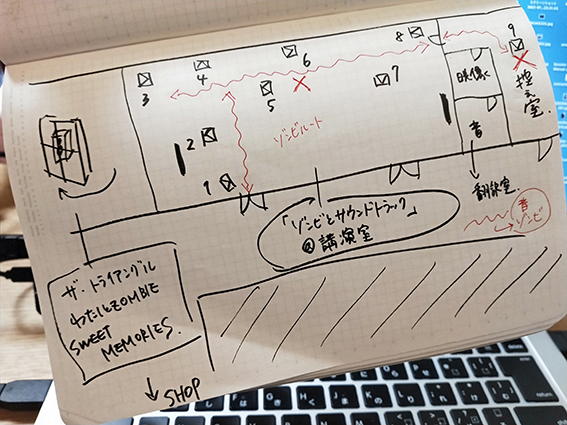 9
8
6
4
3
5
7
2
1
ゾンビルート
映像
控え室
音
翻訳室
音
ゾンビ
「ゾンビとサウンドトラック」
@講演室
ザ・トライアングル
わたしとZOMBIE
SWEET
MEMORIES.
↓ SHOP